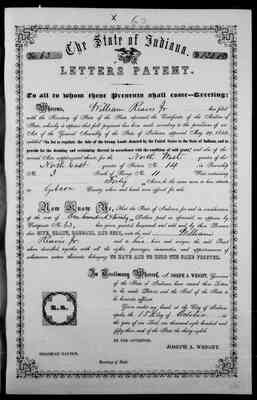 x 63
The State of Indiana.
No. 63
LETTERS PATENT.
To all to whom these Presents shall come—Greeting:
Whereas, William Reavis Jr has filed
with the Secretary of State of the State aforesaid the Certificate of the Auditor of
State, whereby it appears that full payment has been made according to the provisions of
Act of the General Assembly of the State of Indiana approved May 29, 1852,
entitled "An Act to regulate the sale of the Swamp Lands donated by the United States to the State of Indiana, and to
provide for the draining and reclaiming thereof in accordance with the condition of said grant," and also of the
several Acts supplemental thereto for the North West quarter of the
North East quarter of Section No. 14 in Township
No. 3 South of Range No. 11 West containing
Forty Acres
Gibson County when said land were offered for sale.
Now Know Ye, That the State of Indiana for and in consideration
of the sum of Dollars paid as aforesaid, as appears by
Certificate No. 63, has given, granted, bargained and sold and by these Presents
does GIVE, GRANT, BARGAIN, AND SELL, unto the said William
Reavis Jr and to his heirs and assigns the said Tract
above described together with all the rights, privileges, immunities, and appurtenances of
whatsoever nature thereunto belonging TO HAVE AND TO HOLD THE SAME FOREVER.
In Testimony Whereof, I, JOSEPH A. WRIGHT, Governor
of the State of Indiana have caused these Letters
to be made Patent and the Seal of the State to
be hereunto affixed.
Given under my hand, at the City of Indianapolis,
the 18 day of October in
the year of our Lord, one thousand eight hundred and
fifty three and of the State the thirty eighth
BY THE GOVERNOR,
JOSEPH A. WRIGHT.
Secretary of State.